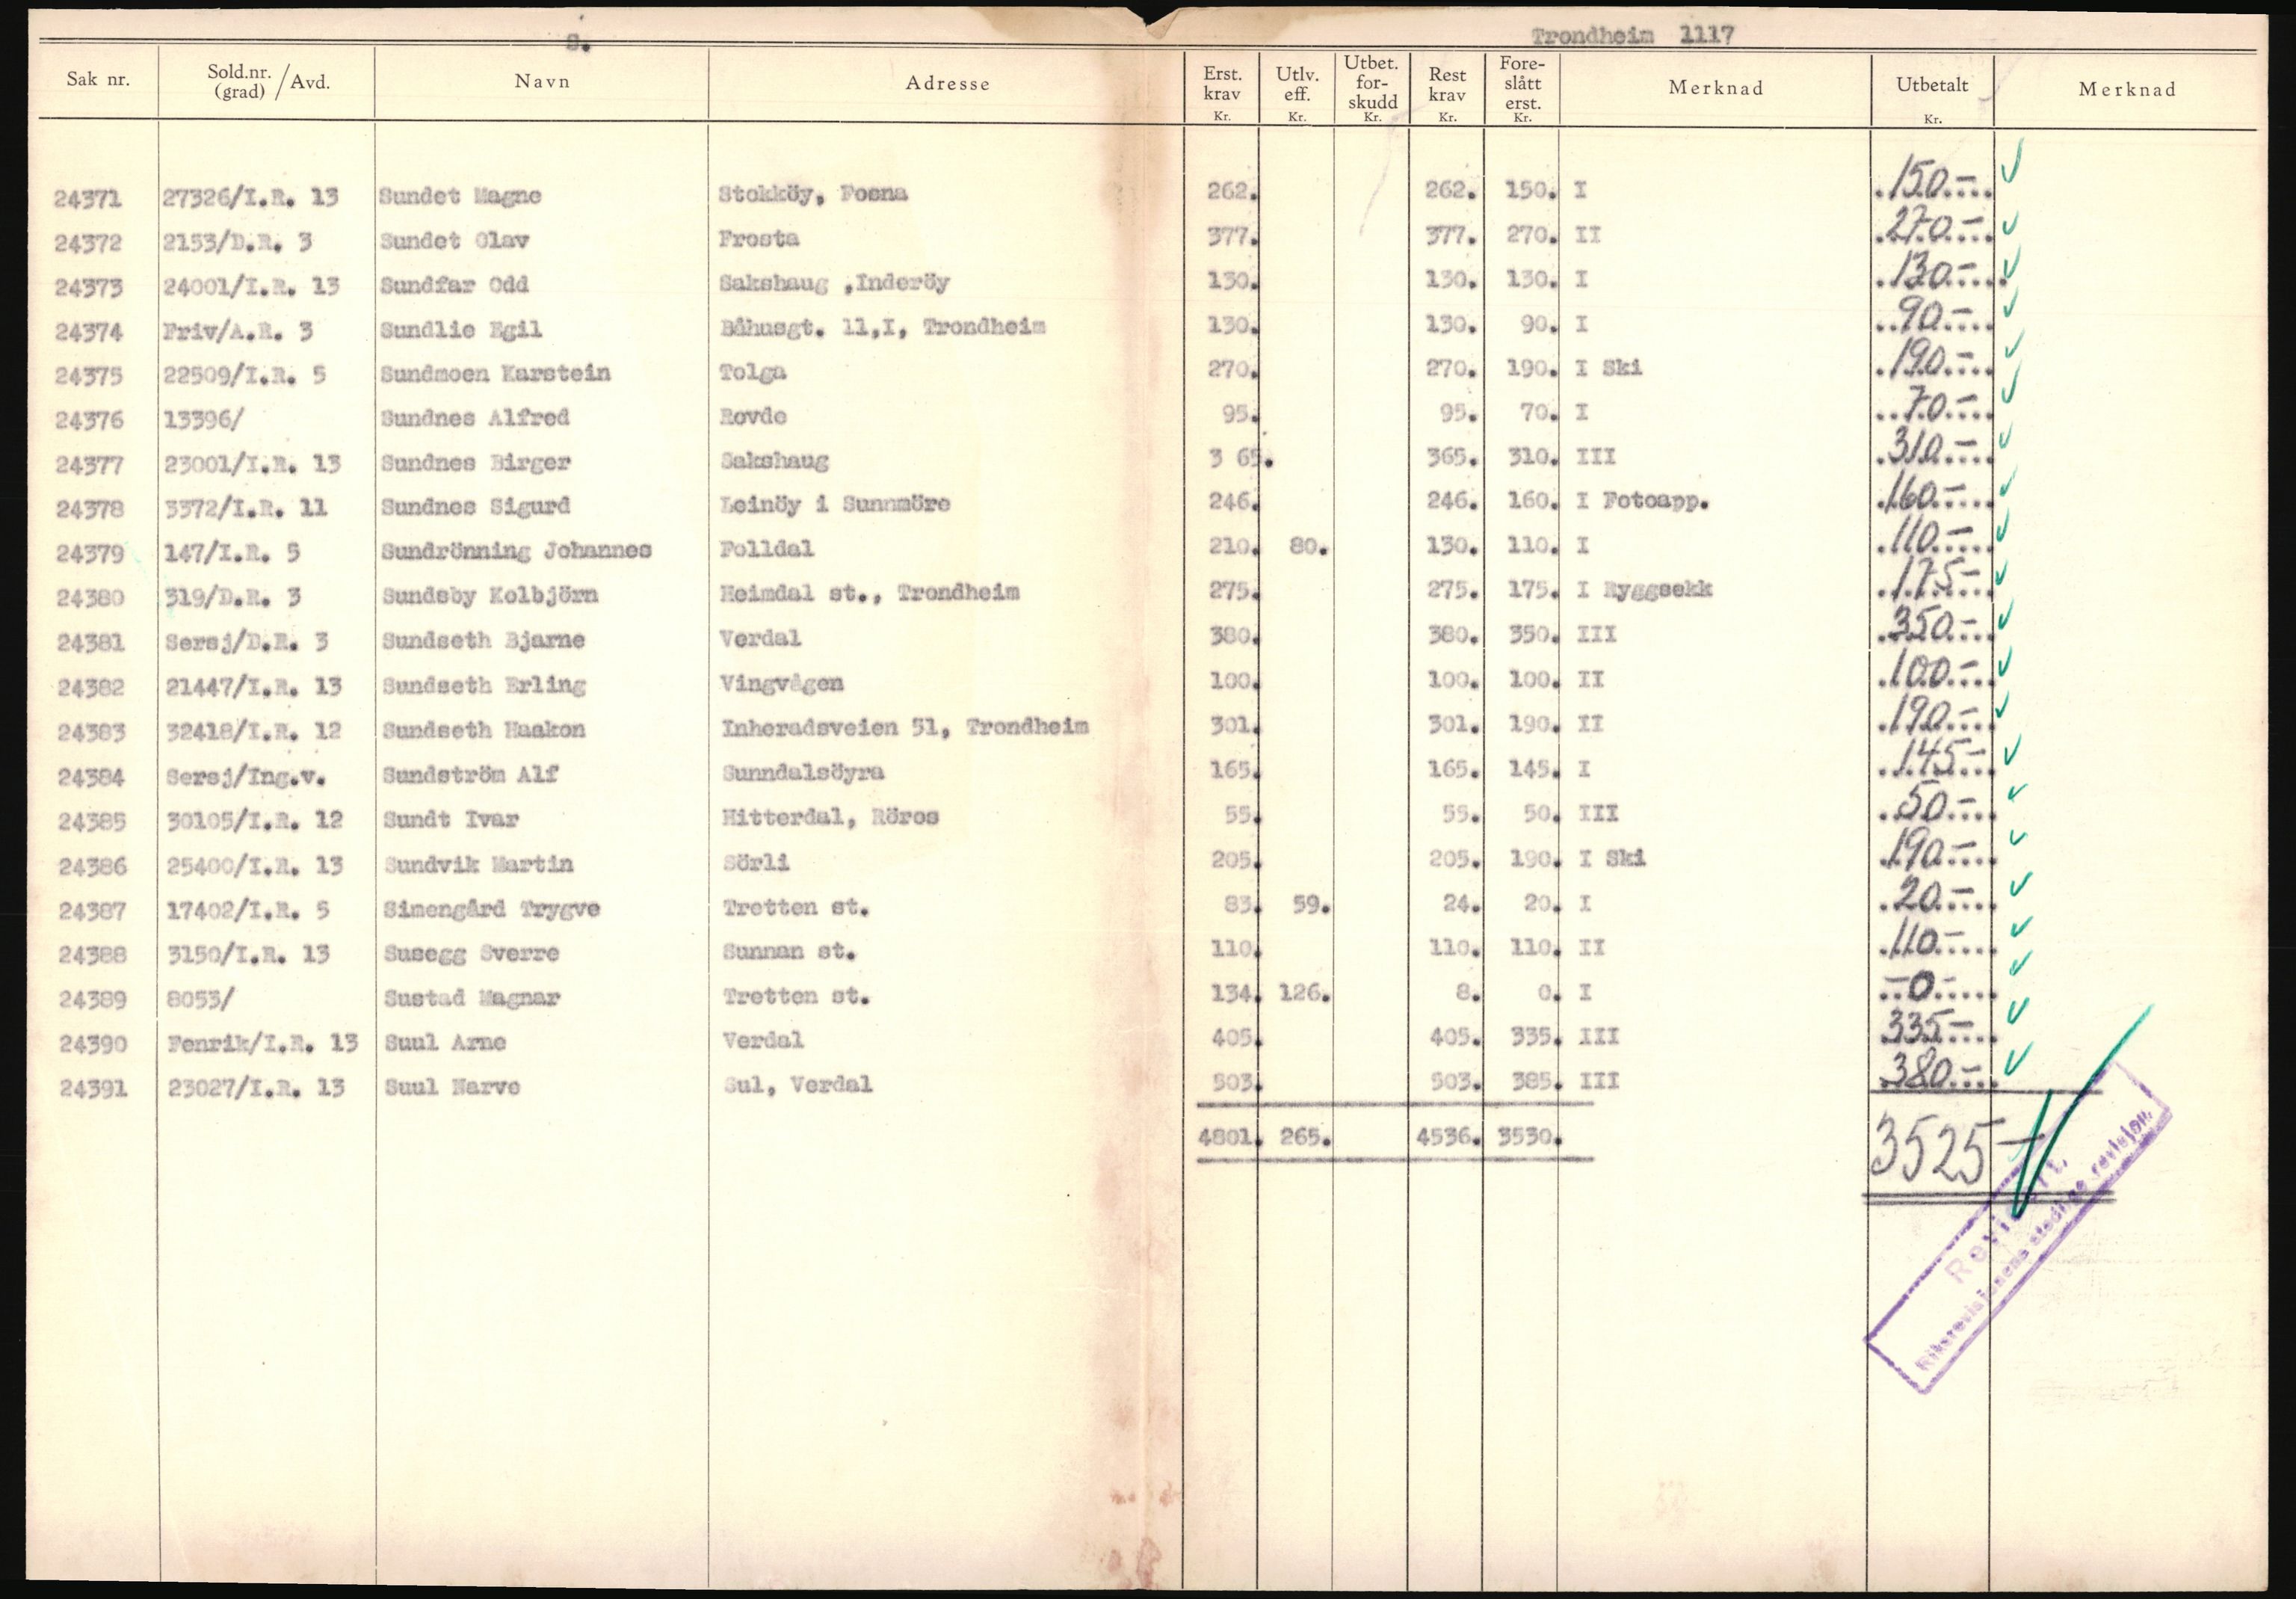 S. Trondheim 1117
Sak nr. Sold.nr. (grad) / Avd. Navn Adresse Erst. krav Kr. Utlv. eff. Kr. Utbet. for- skudd Kr. Rest krav Kr. Fore- slått erst. Kr. Merknad Utbetalt Kr. Merknad
24371 27326/I.R. 13 Sundet Magne Stokköy, Fosna 262. 262. 150. I 150.-
24372 2153/D.R. 3 Sundet Olav Frosta 377. 377. 270. II 270.-
24373 24001/I.R. 13 Sundfar Odd Sakshaug ,Inderöy 130. 130. 130. I 130.-
24374 Friv/A.R. 3 Sundlie Egil Båhusgt. 11,I, Trondheim 130. 130. 90. I 90.-
24375 22509/I.R. 5 Sundmoen Karstein Tolga 270. 270. 190. I Ski 190.-
24376 13396/ Sundnes Alfred Rovde 95. 95. 70. I 70.-
24377 23001/I.R. 13 Sundnes Birger Sakshaug 3 65. 365. 310. III 310.-
24378 3372/I.R. 11 Sundnes Sigurd Leinöy i Sunnmöre 246. 246. 160. I Fotoapp. 160.-
24379 147/I.R. 5 Sundrönning Johannes Folldal 210. 80. 130. 110. I 110.-
24380 319/D.R. 3 Sundsby Kolbjörn Heimdal st., Trondheim 275. 275. 175. I Ryggsekk 175-
24381 Sersj/D.R. 3 Sundseth Bjarne Verdal 380. 380. 350. III 350.-
24382 21447/I.R. 13 Sundseth Erling Vingvågen 100. 100. 100. II 100.-
24383 32418/I.R. 12 Sundseth Haakon Inheradsveien 51, Trondheim 301. 301. 190. II 190.-
24384 Sersj/Ing.v. Sundström Alf Sunndalsöyra 165. 165. 145. I 145-
24385 30105/I.R. 12 Sundt Ivar Hitterdal, Röros 55. 55. 50. III 50.-
24386 25400/I.R. 13 Sundvik Martin Sörli 205. 205. 190. I Ski 190.-
24387 17402/I.R. 5 Simengård Trygve Tretten st. 83. 59. 24. 20. I 20.-
24388 3150/I.R. 13 Susegg Sverre Sunnan st. 110. 110. 110. II 110.-
24389 8053/ Sustad Magnar Tretten st. 134. 126. 8. 0. I -0-
24390 Fenrik/I.R. 13 Suul Arne Verdal 405. 405. 335. III 335-
24391 23027/I.R. 13 Suul Narve Sul, Verdal 503. 503. 385. III 380.-
4801. 265. 4536. 3530. 3525-
Riksrevisjonens stedlige revisjon.